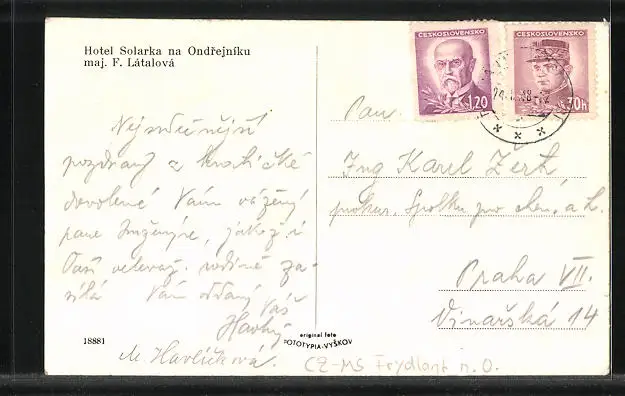 Hotel Solarka na Ondřejníku
maj. F. Látalová
Nejsrdečnější
pozdravy z krátké
dovolené Vám vážený
pane Inženýre, jakož i
Vaší velevaž. rodině za-
sílá Vám oddaný Váš
Havlíč
M. Havlíčková.
18881
original foto
FOTOTYPIA-VYŠKOV
ČESKOSLOVENSKO
1,20
ČESKOSLOVENSKO
30h
Pan
Ing Karel Zert
prokur. Spolku pro chem. a h.
Praha VII.
Vinařská 14
CZ-MS Frydlant n. O.